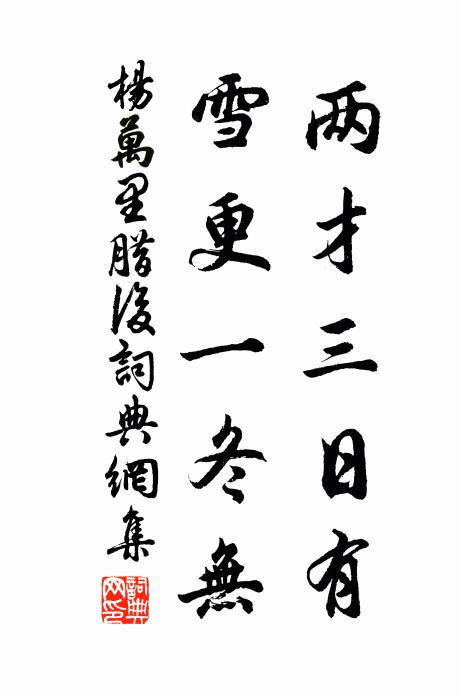 两才三日有
雪更一冬無
楊萬里腊後詞典網集
詞典網印